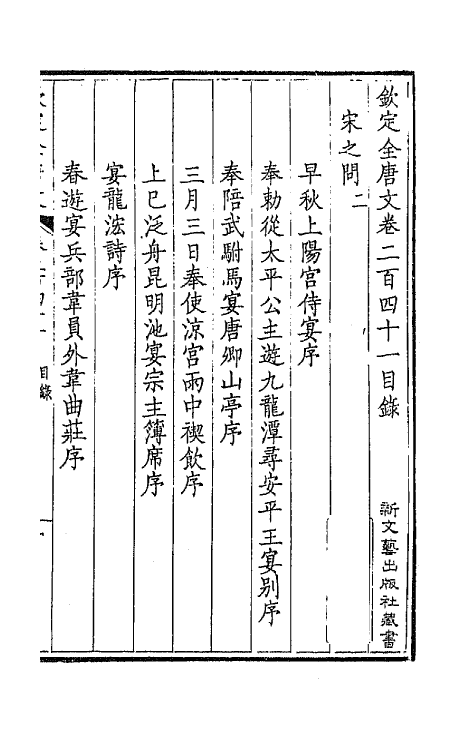 欽定全唐文卷二百四十一目錄
新文藝出版社藏書
宋之問二
早秋上陽宮侍宴序
奉勅從太平公主遊九龍潭尋安平王宴别序
奉陪武駙馬宴唐卿山亭序
三月三日奉使涼宮雨中禊飲序
上巳泛舟昆明池宴宗主簿席序
宴龍泓詩序
春遊宴兵部韋員外韋曲莊序
目錄